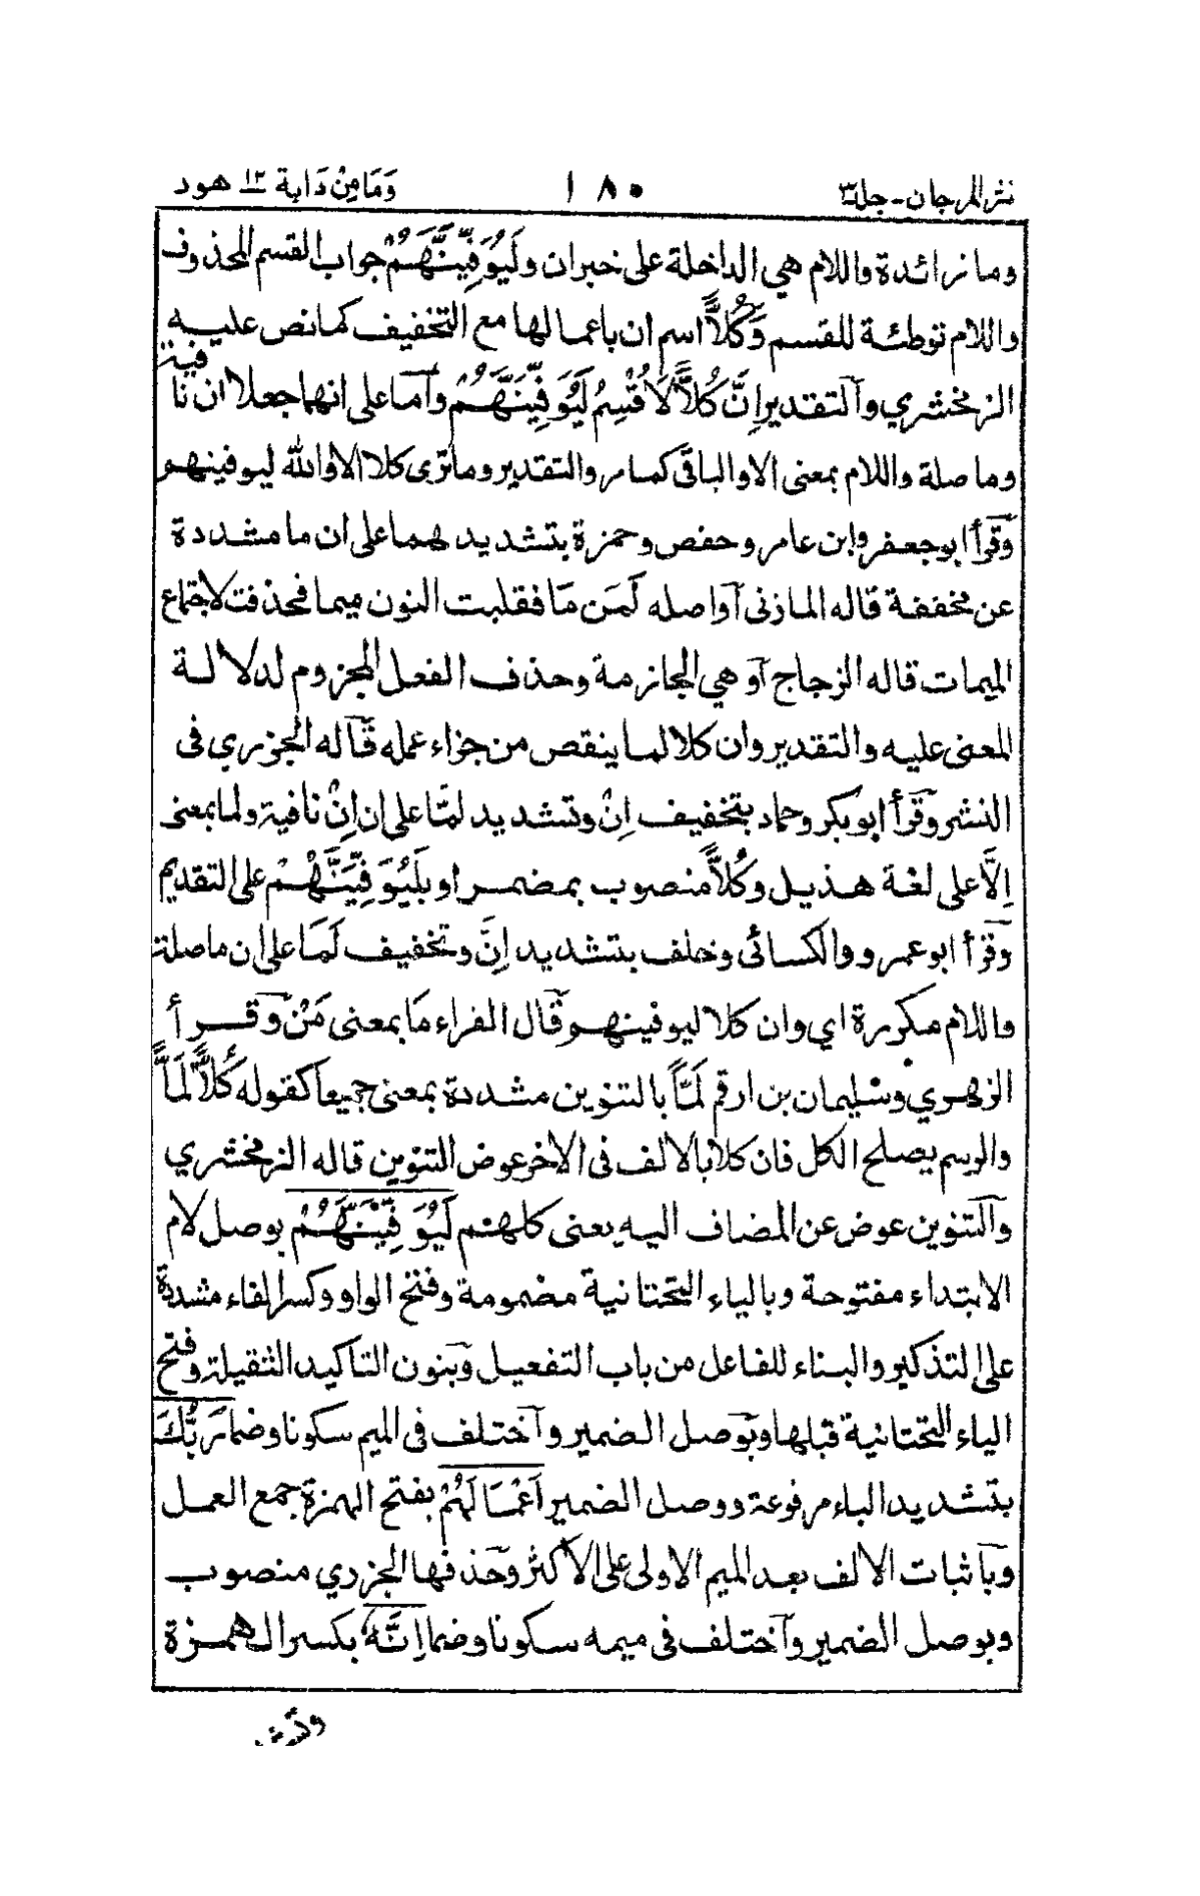 نثر المرجان - جلد ٣
١٨٠
وَمَا مِنْ دَابة ١٢ هود
وما زائدة واللام هي الداخلة على خبران ولَيُوَفِّيَنَّهُمْ جواب القسم المحذوف
واللام توطئة للقسم وَكُلًّا اسم ان باعمالها مع التخفيف كما نص عليه
الزمخشري والتقدير إِنَّ كُلًّا لَأُقْسِمُ لَيُوَفِّيَنَّهُمْ وآما على انهما جعلا ان نافية
وما صلة واللام بمعنى الا والباقى كما مر والتقدير وما ترى كلا الا والله ليوفينهم
وقرأ ابو جعفر وابن عامر وحفص وحمزة بتشديد هما على ان ما مشددة
عن مخففة قاله المازنى آو اصله لَمَن مَا فقلبت النون ميما فحذفت لاجتماع
الميمات قاله الزجاج آو هي الجازمة وحذف الفعل المجزوم لدلالة
المعنى عليه والتقدير وان كلا لما ينقص من جزاء عمله قاله الجزري فى
النشر وقرأ ابو بكر وحماد بتخفيف إِنْ وتشديد لمّا على ان إِنْ نافية ولما بمعنى
إِلَّا على لغة هذيل وكُلًّا منصوب بمضمر او بلَيُوَفِّيَنَّهُمْ على التقديم
وقرأ ابو عمرو والكسائى وخلف بتشديد إِنَّ وتخفيف لَمَا على ان ما صلة
واللام مكررة اي وان كلا ليوفينهم وقال الفراء مَا بمعنى مَنْ وقرأ
الزهري وسُليمان بن ارقم لَمًّا بالتنوين مشددة بمعنى جميعا كقوله كُلًّا لَمًّا
والرسم يصلح الكل فان كلا بالالف فى الاخر عوض التنوين قاله الزمخشري
والتنوين عوض عن المضاف اليه يعنى كلهم لَيُوَفِّيَنَّهُمْ بوصل لام
الابتداء مفتوحة وبالياء التحتانية مضمومة وفتح الواو وكسر الفاء مشددة
على التذكير والبناء للفاعل من باب التفعيل وبنون التاكيد الثقيلة وفتح
الياء التحتانية قبلها وبوصل الضمير وآختلف فى الميم سكونا وضما رَبُّكَ
بتشديد الباء مرفوعة ووصل الضمير أَعْمَالَهُمْ بفتح الهمزة جمع العمل
وبآثبات الالف بعد الميم الاولى على الاكثر وحذفها الجزري منصوب
وبوصل الضمير وآختلف فى ميمه سكونا وضما إِنَّهُ بكسر الهمزة